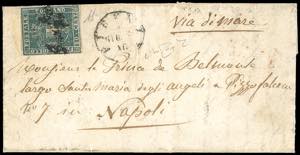 TOSCANO
Via di mare
Monsieur le Prince de Belmonte
Largo Santa Maria degli angeli a Pizzofalcone
No 7 in
Napoli